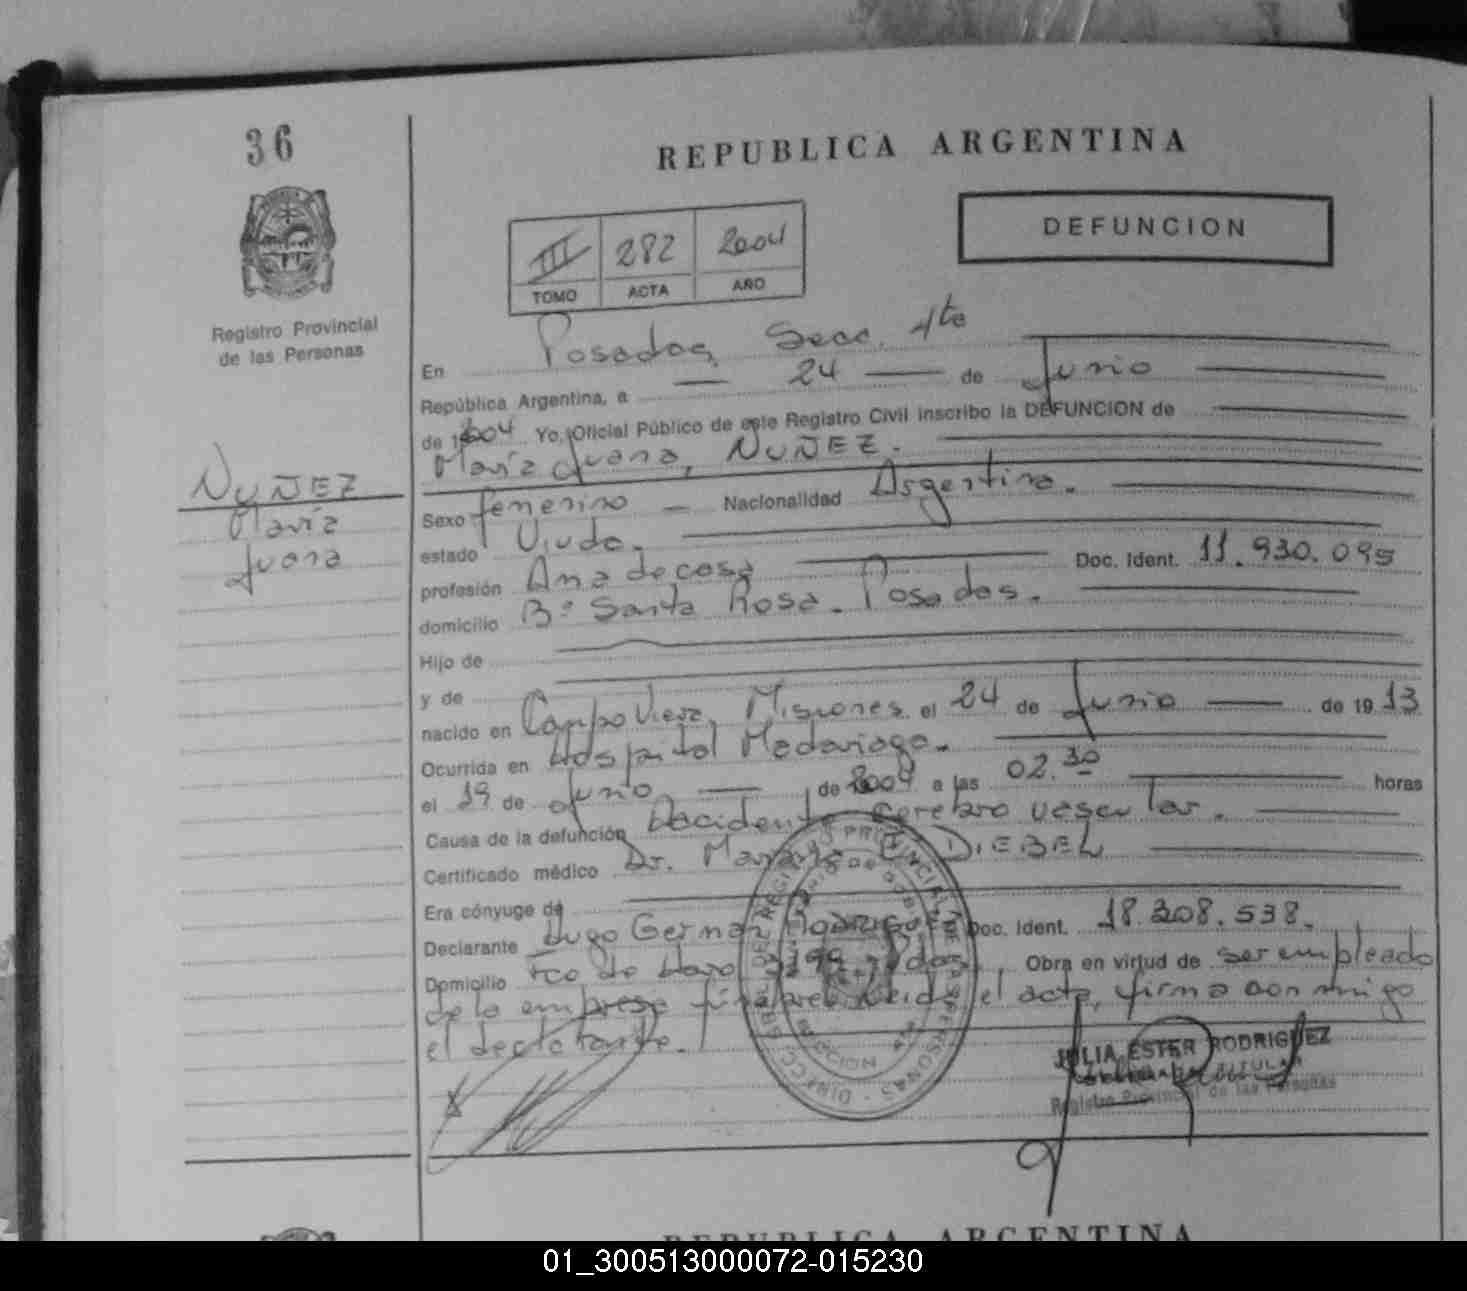 36
REPUBLICA ARGENTINA
DEFUNCION
III 282 2004
TOMO ACTA AÑO
Registro Provincial
de las Personas
En Posadas, Secc. 4ta
República Argentina, a 24 de Junio
de 2004 Yo, Oficial Público de este Registro Civil inscribo la DEFUNCION de
María Juana, NUÑEZ.
NUÑEZ
María
Juana
Sexo femenino Nacionalidad Argentina.
estado Viuda.
profesión Ama de casa Doc. Ident. 11.930.095
domicilio B° Santa Rosa. Posadas.
Hijo de
y de
nacido en Campo Viera, Misiones el 24 de Junio de 1913
Ocurrida en Hospital Madariaga.
el 19 de Junio de 2004 a las 02.30 horas
Causa de la defunción Accidente cerebro vascular.
Certificado médico Dr. DIEBEL
Era cónyuge de
Declarante Hugo German Doc. Ident. 18.208.538.
Domicilio Fco de Haro Pdas. Obra en virtud de ser empleado
de la empresa fúnebre. Leida el acta, firma con migo
el declarante.
JULIA ESTER RODRIGUEZ
Registro Provincial de las Personas
REPUBLICA ARGENTINA
01_300513000072-015230